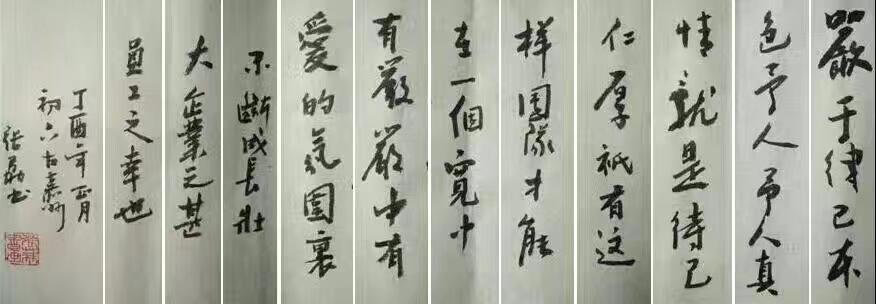 嚴于律己本
色予人予人真
情就是待己
仁厚祇有这
样團隊才能
在一個寬中
有嚴嚴中有
愛的氛圍裏
不斷成長壯
大企業之甚
員工之幸也
丁酉年正月
初六嘉州
张书